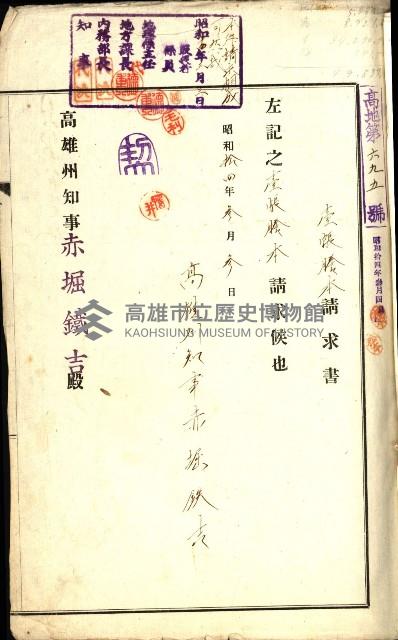 高地第六九五號
昭和拾四年參月四日
臺帳謄本請求書
左記之臺帳謄本請求候也
昭和拾四年參月參日
高雄州知事赤堀鉄吉
高雄州知事赤堀鐵吉殿
昭和 年 月 日
係員
地理係主任
地方課長
內務部長
知事
毛利
高雄市立歷史博物館
KAOHSIUNG MUSEUM OF HISTORY